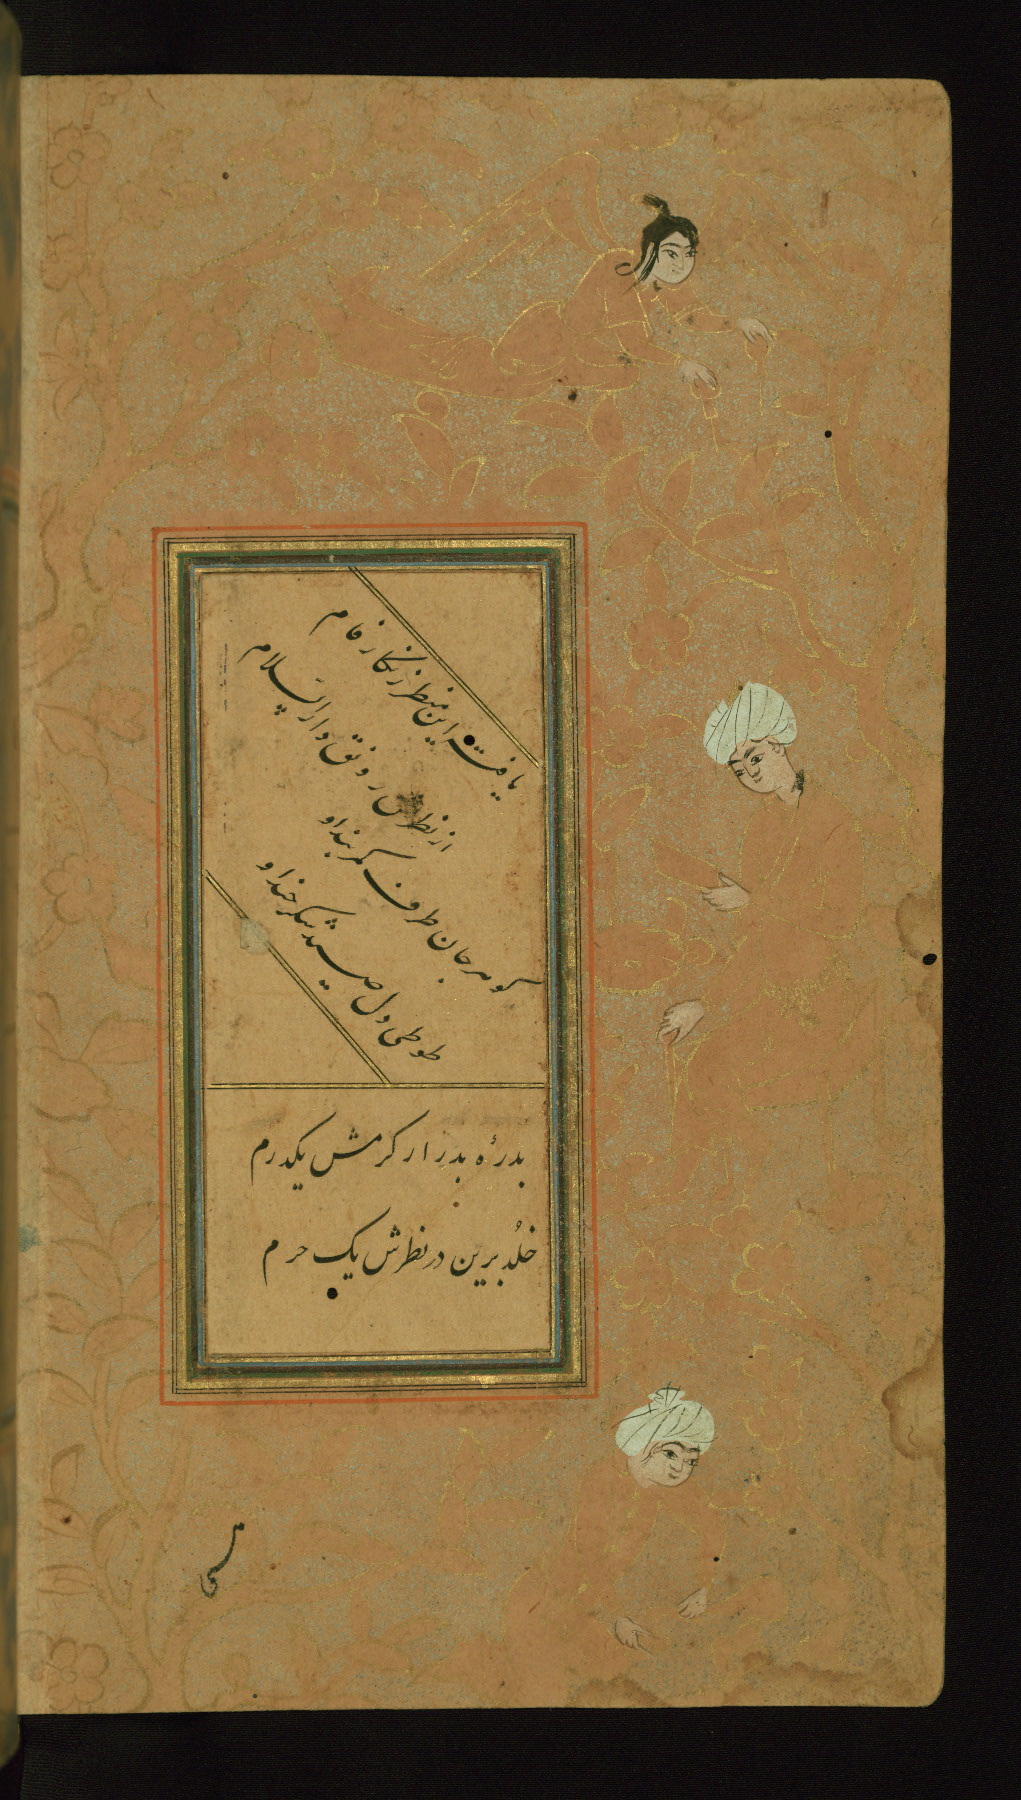 یافته این منظر زنگار فام
از نظرش رونق دار السّلام
گوهر جان طرف کمربند او
طوطی دل صید شکرخند او
بدرهٔ بدر از کرمش یکدرم
خُلد برین در نظرش یک حرم